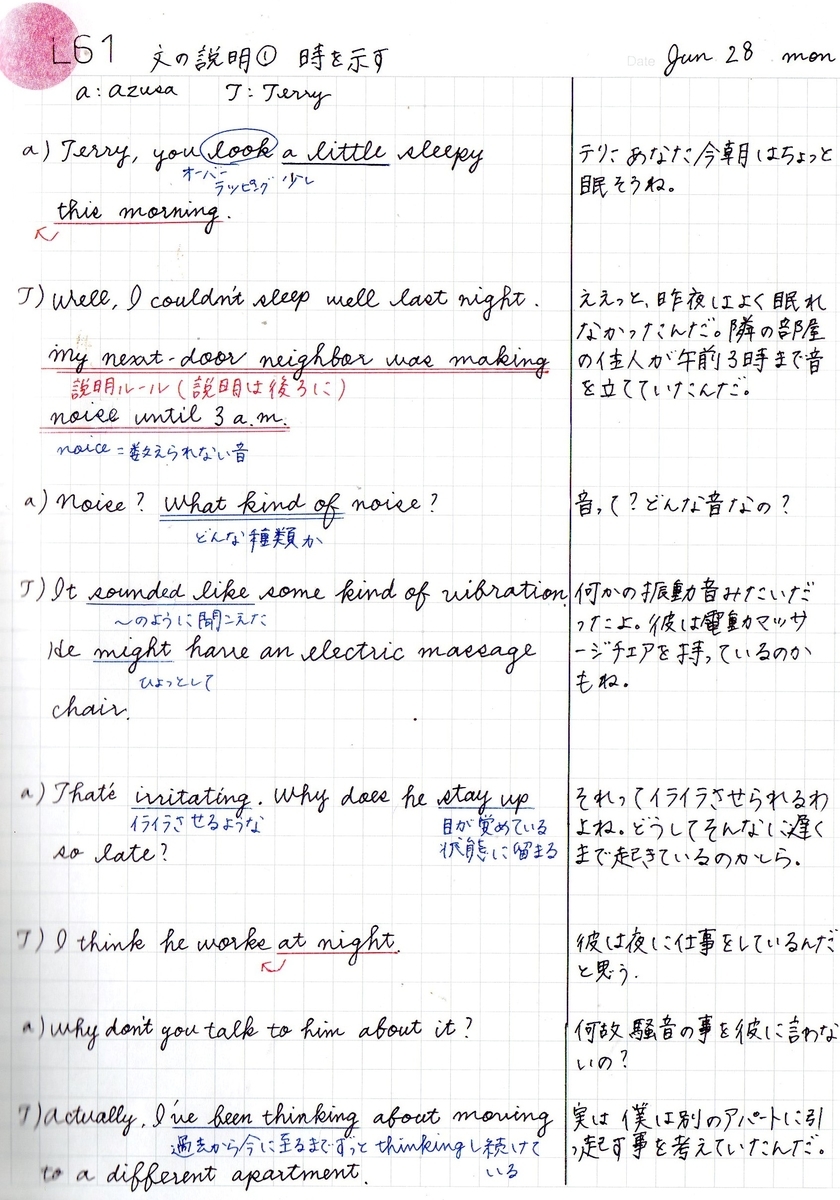 L61 文の説明① 時を示す Date Jun 28 mon
a: azusa T: Terry
a) Terry, you look a little sleepy
オーバーラッピング 少し
this morning.
テリー あなた今朝はちょっと
眠そうね。
T) Well, I couldn't sleep well last night.
my next-door neighbor was making
説明ルール(説明は後ろに)
noise until 3 a.m.
noice = 数えられない音
ええっと、昨夜はよく眠れ
なかったんだ。隣の部屋
の住人が午前3時まで音
を立てていたんだ。
a) Noise? What kind of noise?
どんな種類か
音って?どんな音なの?
T) It sounded like some kind of vibration.
〜のように聞こえた
He might have an electric massage
ひょっとして
chair.
何かの振動音みたいだ
ったよ。彼は電動マッサ
ージチェアを持っているのか
もね。
a) That's irritating. Why does he stay up
イライラさせるような 目が覚めている
状態に留まる
so late?
それってイライラさせられるわ
よね。どうしてそんなに遅く
まで起きているのかしら。
T) I think he works at night.
彼は夜に仕事をしているんだ
と思う.
a) Why don't you talk to him about it?
何故 騒音の事を彼に言わな
いの?
T) Actually, I've been thinking about moving
過去から今に至るまでずっと thinkingし続けて
いる
to a different apartment.
実は 僕は別のアパートに引
っ起す事を考えていたんだ。